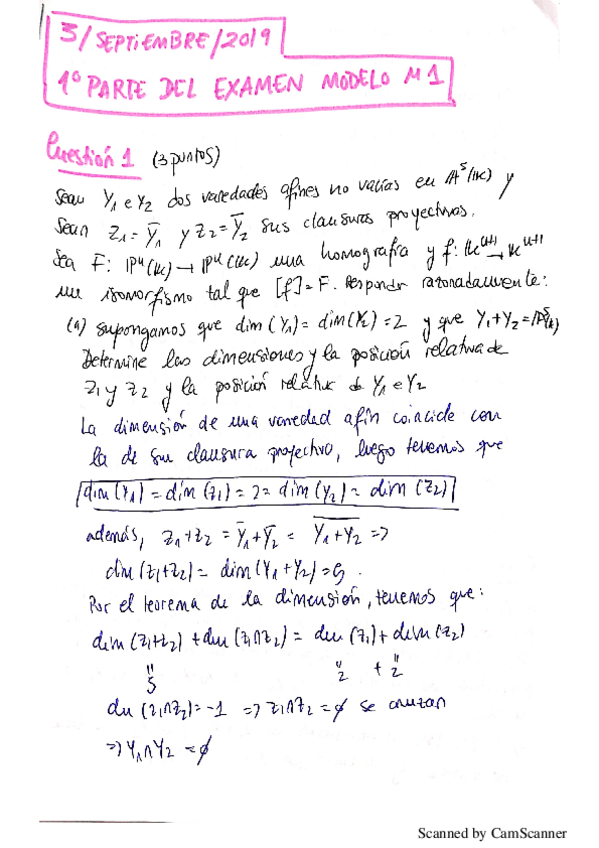 3/SEPTIEMBRE/2019
1º PARTE DEL EXAMEN MODELO M1
Cuestión 1 (3 puntos)
Sean Y₁ e Y₂ dos variedades afines no vacías en A⁵(K) y
sean Z₁ = Y̅₁ y Z₂ = Y̅₂ sus clausuras proyectivas.
Sea F: Pⁿ(K) → Pⁿ(K) una homografía y f: Kⁿ⁺¹ → Kⁿ⁺¹
un isomorfismo tal que [f] = F. Responder razonadamente:
(a) supongamos que dim(Y₁) = dim(Y₂) = 2 y que Y₁+Y₂ = A⁵(K)
Determine las dimensiones y la posición relativa de
Z₁ y Z₂ y la posición relativa de Y₁ e Y₂
La dimensión de una variedad afín coincide con
la de su clausura proyectiva, luego tenemos que
dim(Y₁) = dim(Z₁) = 2 = dim(Y₂) = dim(Z₂)
además, Z₁+Z₂ = Y̅₁+Y̅₂ = \overline{Y₁+Y₂} =>
dim(Z₁+Z₂) = dim(Y₁+Y₂) = 5.
Por el teorema de la dimensión, tenemos que:
dim(Z₁+Z₂) + dim(Z₁∩Z₂) = dim(Z₁) + dim(Z₂)
" " "
5 2 + 2
dim(Z₁∩Z₂) = -1 => Z₁∩Z₂ = ∅ se cruzan
=> Y₁∩Y₂ = ∅
Scanned by CamScanner